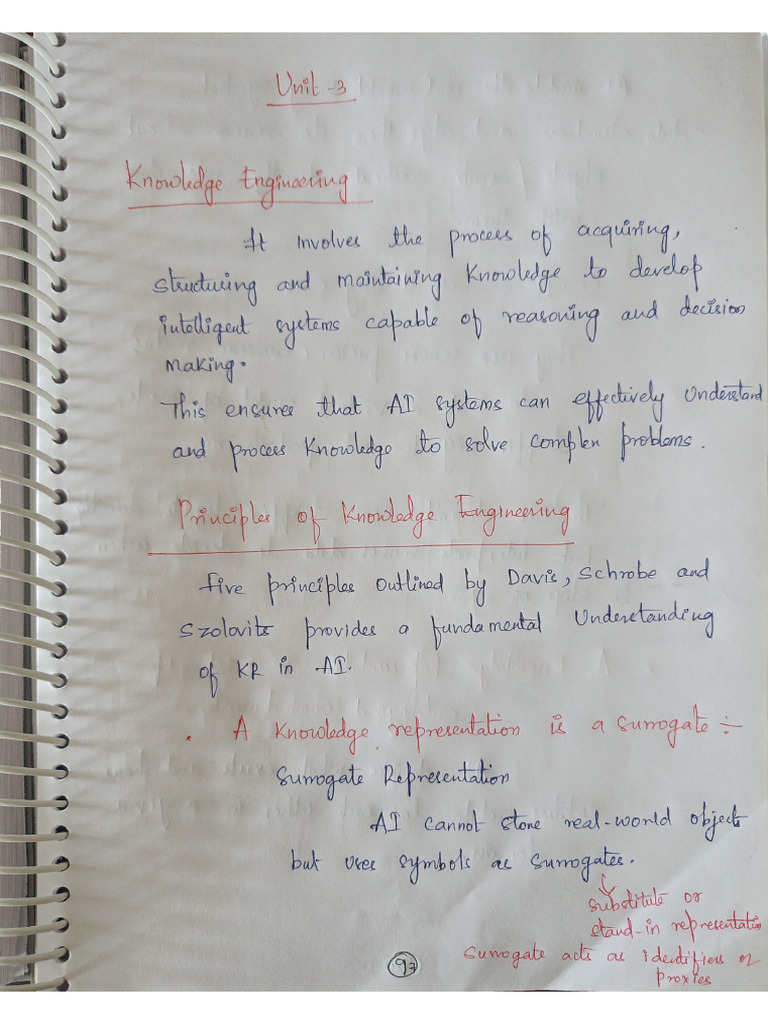 Unit -3
Knowledge Engineering
It involves the process of acquiring,
structuring and maintaining Knowledge to develop
intelligent systems capable of reasoning and decision
making.
This ensures that AI systems can effectively Understand
and process Knowledge to solve complex problems.
Principles of Knowledge Engineering
five principles outlined by Davis, Schrobe and
Szolovits provides a fundamental Understanding
of KR in AI.
. A Knowledge representation is a surrogate ÷
Surrogate Representation
AI cannot store real-world objects
but uses symbols as surrogates.
substitute or
stand-in representation
Surrogate acts as identifiers or
proxies
97